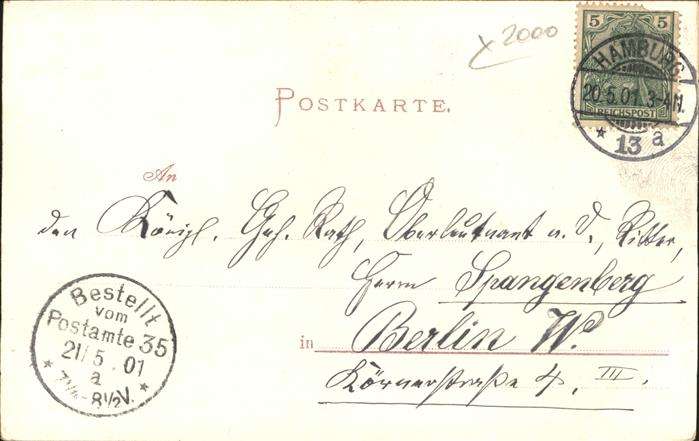 x 2000
5 5
HAMBURG
20.5.01. 3-4N.
REICHSPOST
* 13 a
POSTKARTE.
An
den Königl. Geh. Rath, Oberleutnant a. D., Ritter,
Herrn Spangenberg
in Berlin W.
Körnerstraße 4, III.
Bestellt
vom
Postamte 35
21/5.01
a
* 7¼-8½V. *